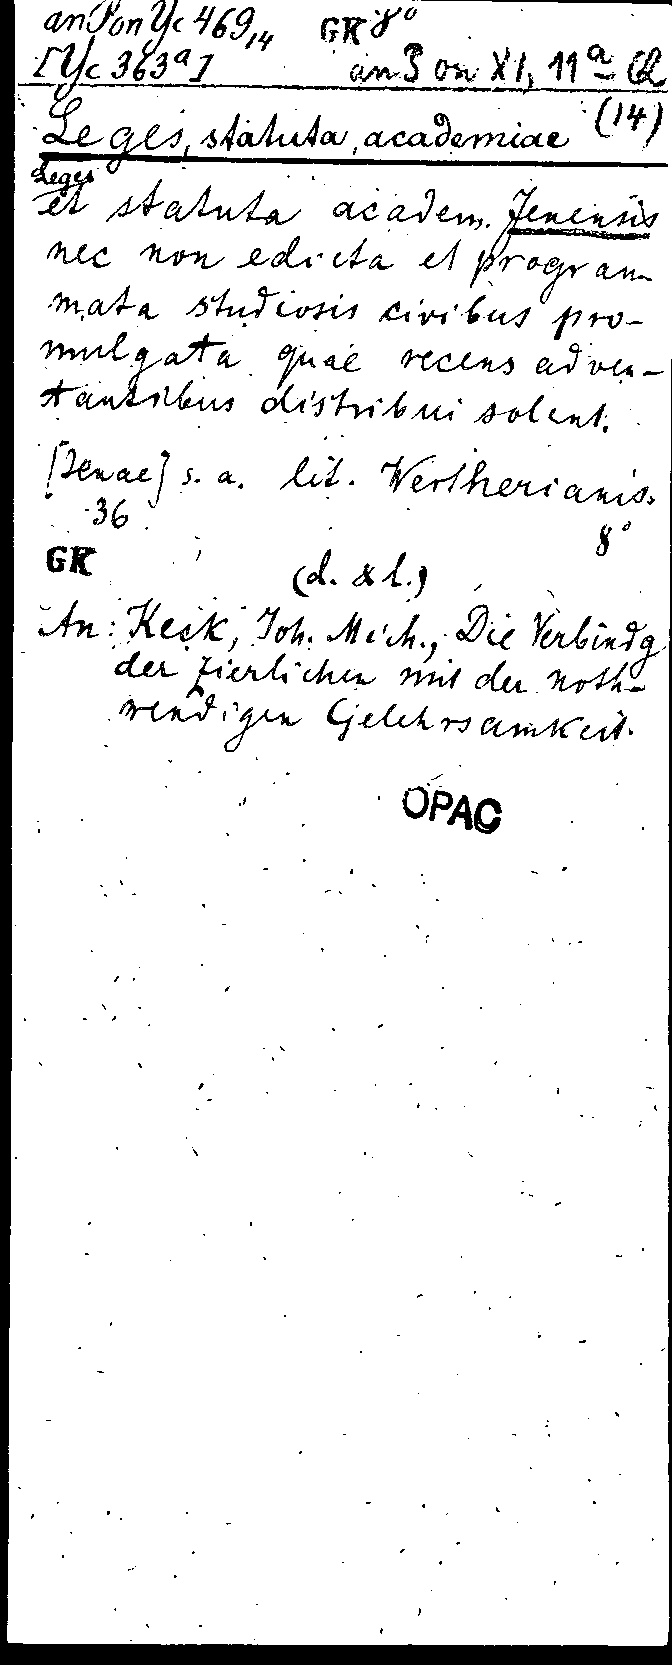 an Pon Yc 469,14 GK 8°
[Yc 363a] an Pon XI, 11a
(14)
Leges, statuta, academiae
Leges
et statuta academ. Jenensis
nec non edicta et program-
mata studiosis civibus pro-
mulgata quae recens adven-
tantibus distribui solent.
[Jenae] s. a. lit. Wertherianis.
36 8°
GK
(d. & l.)
An: Keck, Joh. Mich., Die Verbindg
der zierlichen mit der noth-
wendigen Gelehrsamkeit.
OPAC